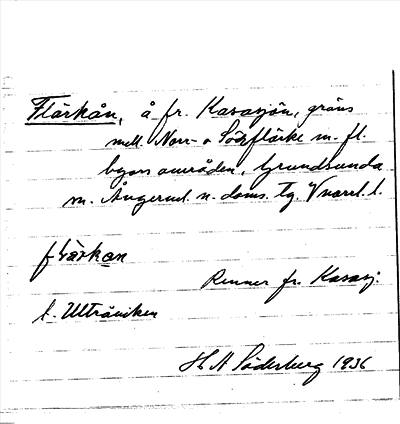 Flärkån, å fr. Kasasjön, gräns
mell. Norr- o Söderflärke m. fl.
byars områden, Grundsunda
sn. Ångerml. n. doms. tg. Vnorrl. l.
flärkan
Rinner fr. Kasasj.
t. Ulträviken
H A Söderberg 1936